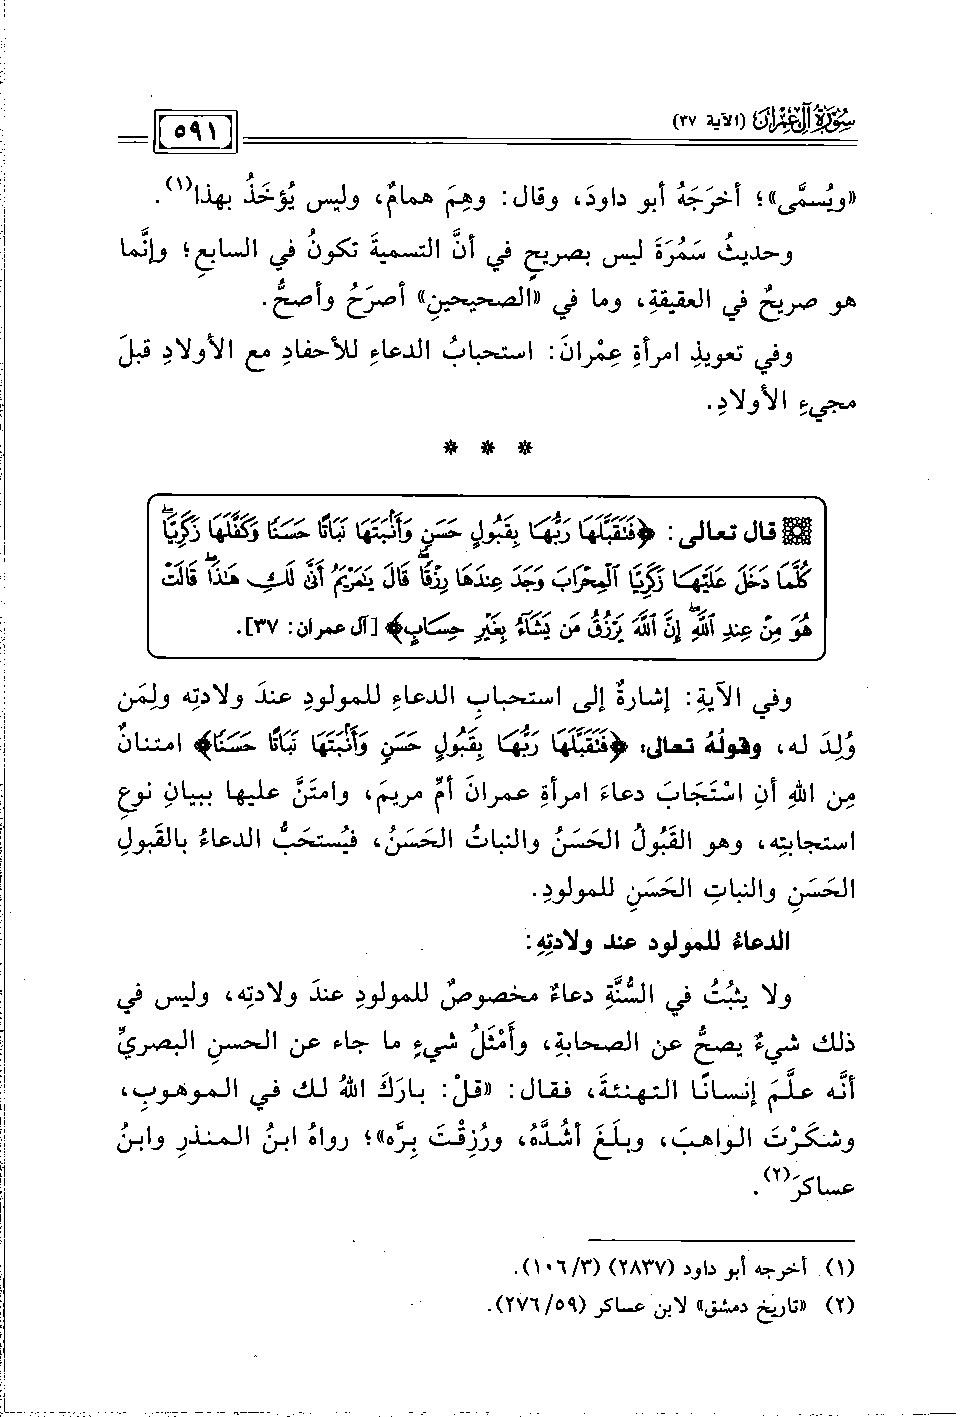 سُورَةُ آلِ عِمْرَان (الآية ٣٧)
٥٩١
«ويُسمَّى»؛ أخرَجَهُ أبو داودَ، وقال: وهِمَ همامٌ، وليس يُؤخَذُ بهذا(١).
وحديثُ سَمُرَةَ ليس بصريحٍ في أنَّ التسميةَ تكونُ في السابعِ؛ وإنَّما
هو صريحٌ في العقيقةِ، وما في «الصحيحينِ» أصرَحُ وأصحُّ.
وفي تعويذِ امرأةِ عِمْرانَ: استحبابُ الدعاءِ للأحفادِ مع الأولادِ قبلَ
مجيءِ الأولادِ.
* * *
قال تعالى: ﴿فَتَقَبَّلَهَا رَبُّهَا بِقَبُولٍ حَسَنٍ وَأَنْبَتَهَا نَبَاتًا حَسَنًا وَكَفَّلَهَا زَكَرِيَّاۖ
كُلَّمَا دَخَلَ عَلَيْهَا زَكَرِيَّا ٱلْمِحْرَابَ وَجَدَ عِندَهَا رِزْقًاۖ قَالَ يَٰمَرْيَمُ أَنَّىٰ لَكِ هَٰذَاۖ قَالَتْ
هُوَ مِنْ عِندِ ٱللَّهِۖ إِنَّ ٱللَّهَ يَرْزُقُ مَن يَشَآءُ بِغَيْرِ حِسَابٍ﴾ [آل عمران: ٣٧].
وفي الآيةِ: إشارةٌ إلى استحبابِ الدعاءِ للمولودِ عندَ ولادتِه ولِمَن
وُلِدَ له، وقولُهُ تعالى: ﴿فَتَقَبَّلَهَا رَبُّهَا بِقَبُولٍ حَسَنٍ وَأَنْبَتَهَا نَبَاتًا حَسَنًا﴾ امتنانٌ
مِن اللهِ أنِ اسْتَجَابَ دعاءَ امرأةِ عمرانَ أمِّ مريمَ، وامتَنَّ عليها ببيانِ نوعِ
استجابتِه، وهو القَبُولُ الحَسَنُ والنباتُ الحَسَنُ، فيُستحَبُّ الدعاءُ بالقَبُولِ
الحَسَنِ والنباتِ الحَسَنِ للمولودِ.
الدعاءُ للمولود عند ولادتِهِ:
ولا يثبُتُ في السُّنَّةِ دعاءٌ مخصوصٌ للمولودِ عندَ ولادتِه، وليس في
ذلك شيءٌ يصحُّ عن الصحابةِ، وأَمْثَلُ شيءٍ ما جاء عن الحسنِ البصريِّ
أنَّه علَّمَ إنسانًا التهنئةَ، فقال: «قلْ: بارَكَ اللهُ لك في الموهوبِ،
وشكَرْتَ الواهبَ، وبلَغَ أشُدَّهُ، ورُزِقْتَ بِرَّه»؛ رواهُ ابنُ المنذرِ وابنُ
عساكرَ(٢).
(١) أخرجه أبو داود (٢٨٣٧) (٣/١٠٦).
(٢) «تاريخ دمشق» لابن عساكر (٥٩/٢٧٦).